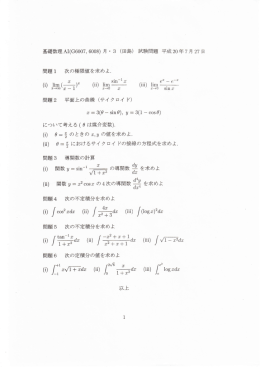 基礎数理 A3(G6007, 6008) 月・3 (田嶋) 試験問題 平成20年7月27日
問題1 次の極限値を求めよ.
(i) lim_{x→∞} (x/(x−1))^x (ii) lim_{x→0} sin^{-1} x / x (iii) lim_{x→0} (e^x − e^{-x}) / sin x
問題2 平面上の曲線 (サイクロイド)
x = 3(θ − sin θ), y = 3(1 − cos θ)
について考える (θ は媒介変数).
(i) のときの x, y の値を求めよ.
(ii) におけるサイクロイドの接線の方程式を求めよ.
問題3 導関数の計算
(i) 関数 y = sin^{-1} x/√(1 + x²) の導関数 dy/dx を求めよ
(ii) 関数 y = x² cos x の4次の導関数 d⁴y/dx⁴ を求めよ
問題4 次の不定積分を求めよ
(i) ∫ cos² x dx (ii) ∫ 4x/(x² + 3) dx (iii) ∫ (log x)² dx
問題5 次の不定積分を求めよ
(i) ∫ tan^{-1} x/(1 + x²) dx (ii) ∫ (−x² + x + 1)/(x³ + x + 1) dx (iii) ∫ √(1 − x²) dx
問題6 次の定積分の値を求めよ
(i) x√(1 + x) dx (ii) x/(1 + x²) dx (iii) log x dx
以上
1